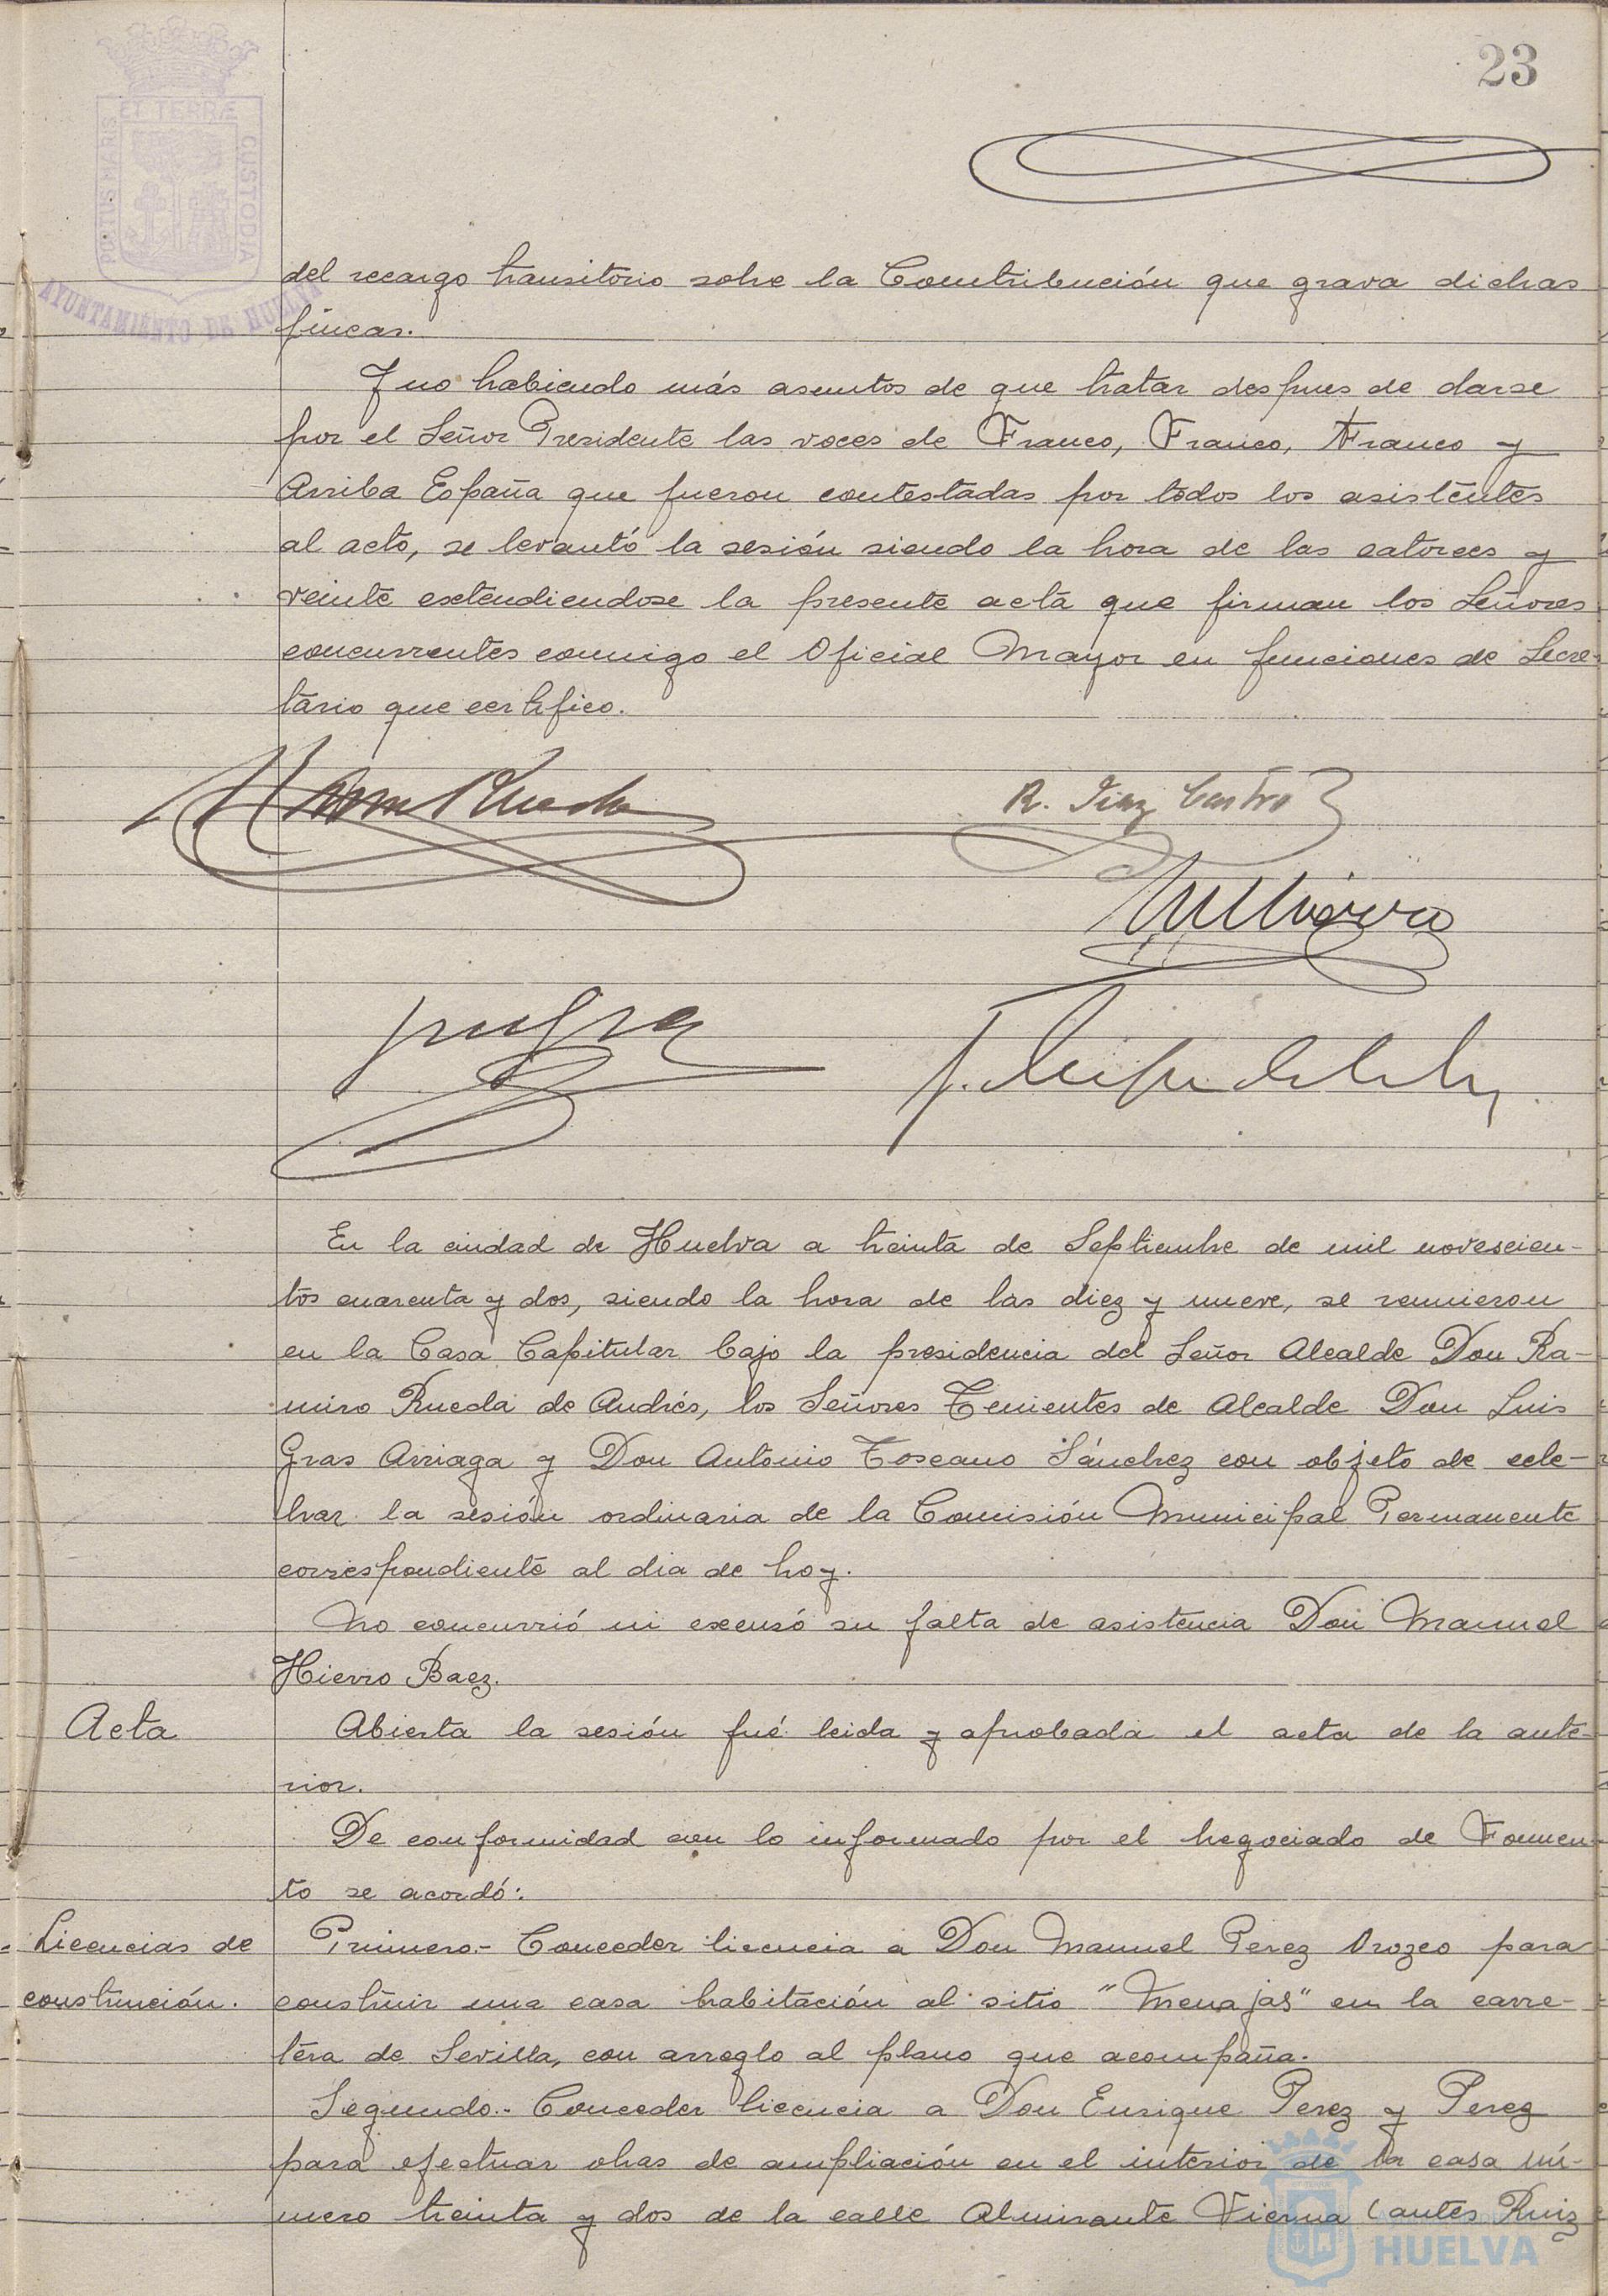 23
PORTUS MARIS
ET TERRÆ
CUSTODIA
AYUNTAMIENTO DE HUELVA
del recargo transitorio sobre la Contribución que grava dichas
fincas.
Y no habiendo más asuntos de que tratar despues de darse
por el Señor Presidente las voces de Franco, Franco, Franco y
Arriba España que fueron contestadas por todos los asistentes
al acto, se levantó la sesión siendo la hora de las catorces y
veinte extendiendose la presente acta que firman los Señores
concurrentes conmigo el Oficial Mayor en funciones de Secre-
tario que certifico.
Rueda
R. Diaz Castro
En la ciudad de Huelva a treinta de Septiembre de mil novescien-
tos cuarenta y dos, siendo la hora de las diez y nueve, se reunieron
en la Casa Capitular bajo la presidencia del Señor Alcalde Don Ra-
miro Rueda de Andrés, los Señores Tenientes de Alcalde Don Luis
Gras Arriaga y Don Antonio Toscano Sánchez con objeto de cele-
brar la sesión ordinaria de la Comisión Municipal Permanente
correspondiente al dia de hoy.
No concurrió ni excusó su falta de asistencia Don Manuel
Hierro Baez.
Acta
Abierta la sesión fué leida y aprobada el acta de la ante-
rior.
De conformidad con lo informado por el negociado de Fomen-
to se acordó:
Licencias de
construción.
Primero.- Conceder licencia a Don Manuel Perez Orozco para
construir una casa habitación al sitio "Menajas" en la carre-
tera de Sevilla, con arreglo al plano que acompaña.
Segundo.- Conceder licencia a Don Enrique Perez y Perez
para efectuar obras de ampliación en el interior de la casa nú-
mero treinta y dos de la calle Almirante Vierna (antes Ruiz
HUELVA